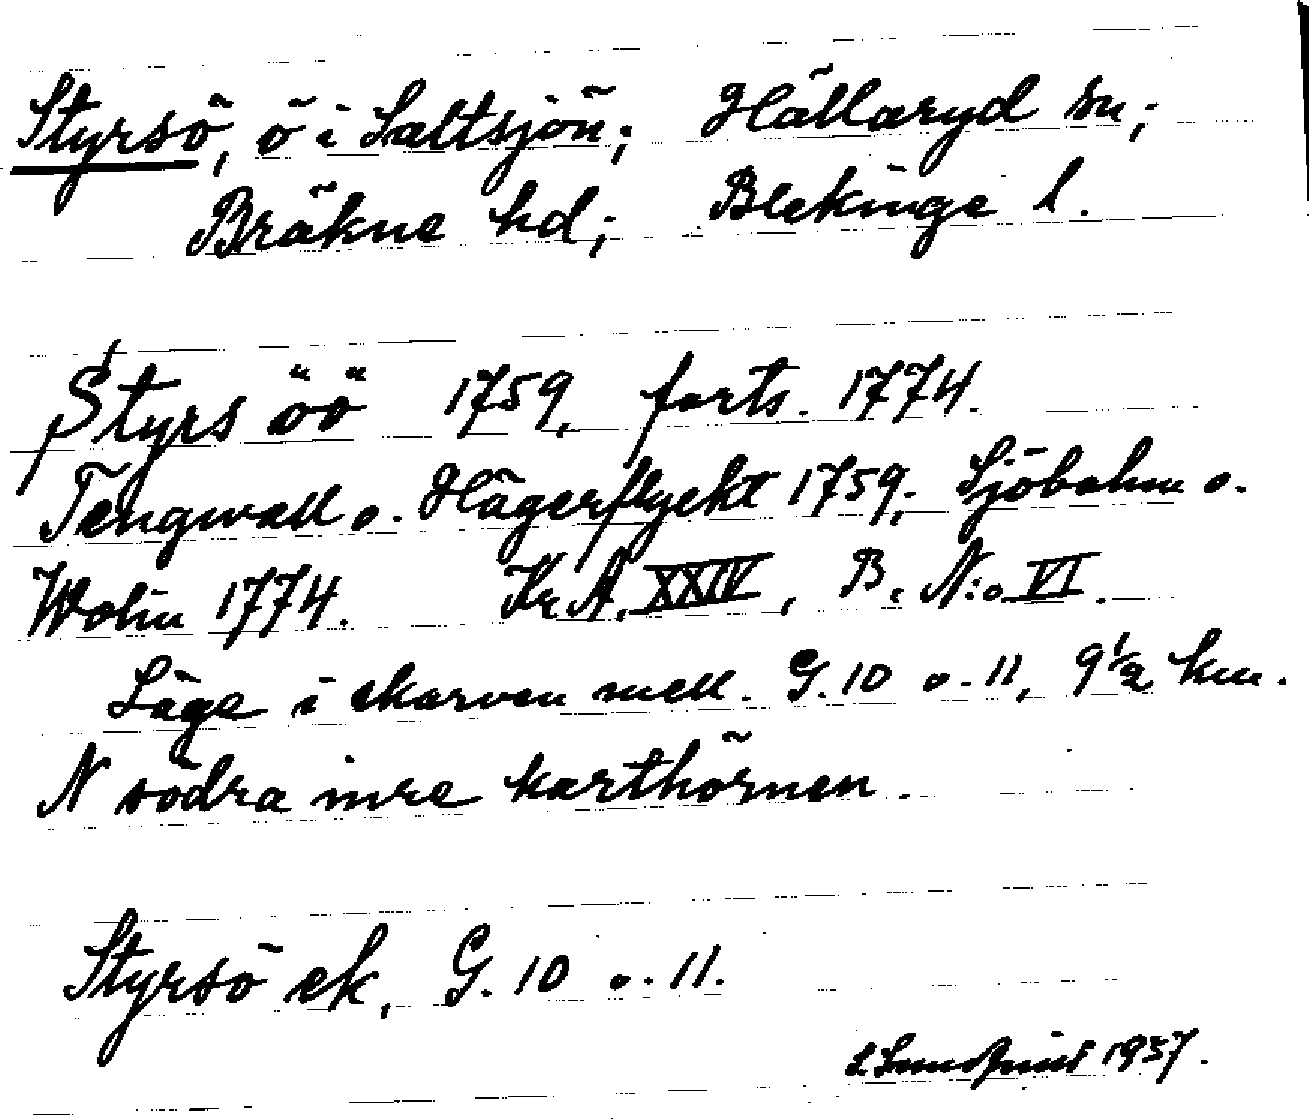 Styrsö, ö i Saltsjön; Hällaryd sn;
Bräkne hd; Blekinge l.
Styrs öö 1759, forts. 1774.
Tengwall o. Hägerflyckt 1759; Sjöbohm o.
Wolin 1774. Kr. A. XXIV, B. N:o VI.
Läge i skarven mell. G. 10 o. 11, 9 1/2 km.
N södra inre karthörnen.
Styrsö ek, G. 10 o. 11.
1937.